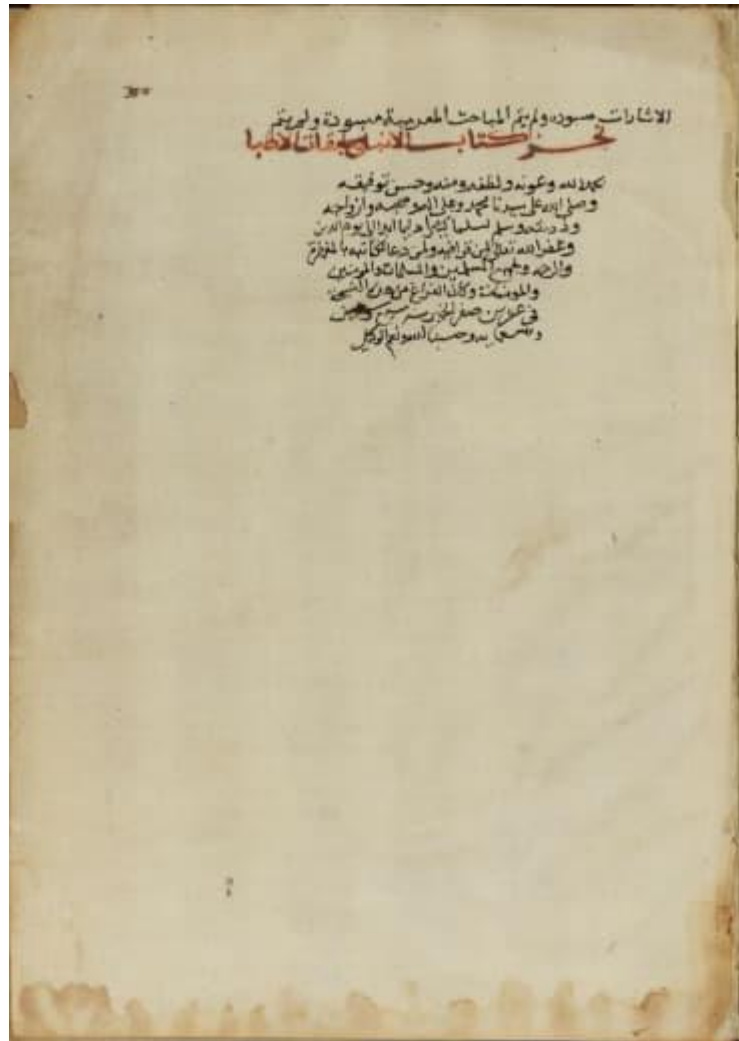 الاشارات مسوده ولم يتم المباحث المغربية مسودة ولم يتم
نجز كتاب الانباء طبقات الاطبا
بحمد الله وعونه ولطفه ومنه وحسن توفيقه
وصلى الله على سيدنا محمد وعلى اله وصحبه وازواجه
وذريته وسلم تسليما كثيرا دايما ابدا الى يوم الدين
وغفر الله تعالى لمن قرا فيه ولمن دعا لكاتبه بالمغفرة
والرحمه ولجميع المسلمين والمسلمات والمومنين
والمومنات وكان الفراغ من هذه النسخه
في عشرين صفر الخير سنه
وحسبنا الله ونعم الوكيل